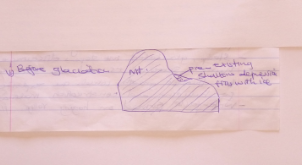 i) Before glaciation
Mt.
pre-existing
shallow depression
fills with ice